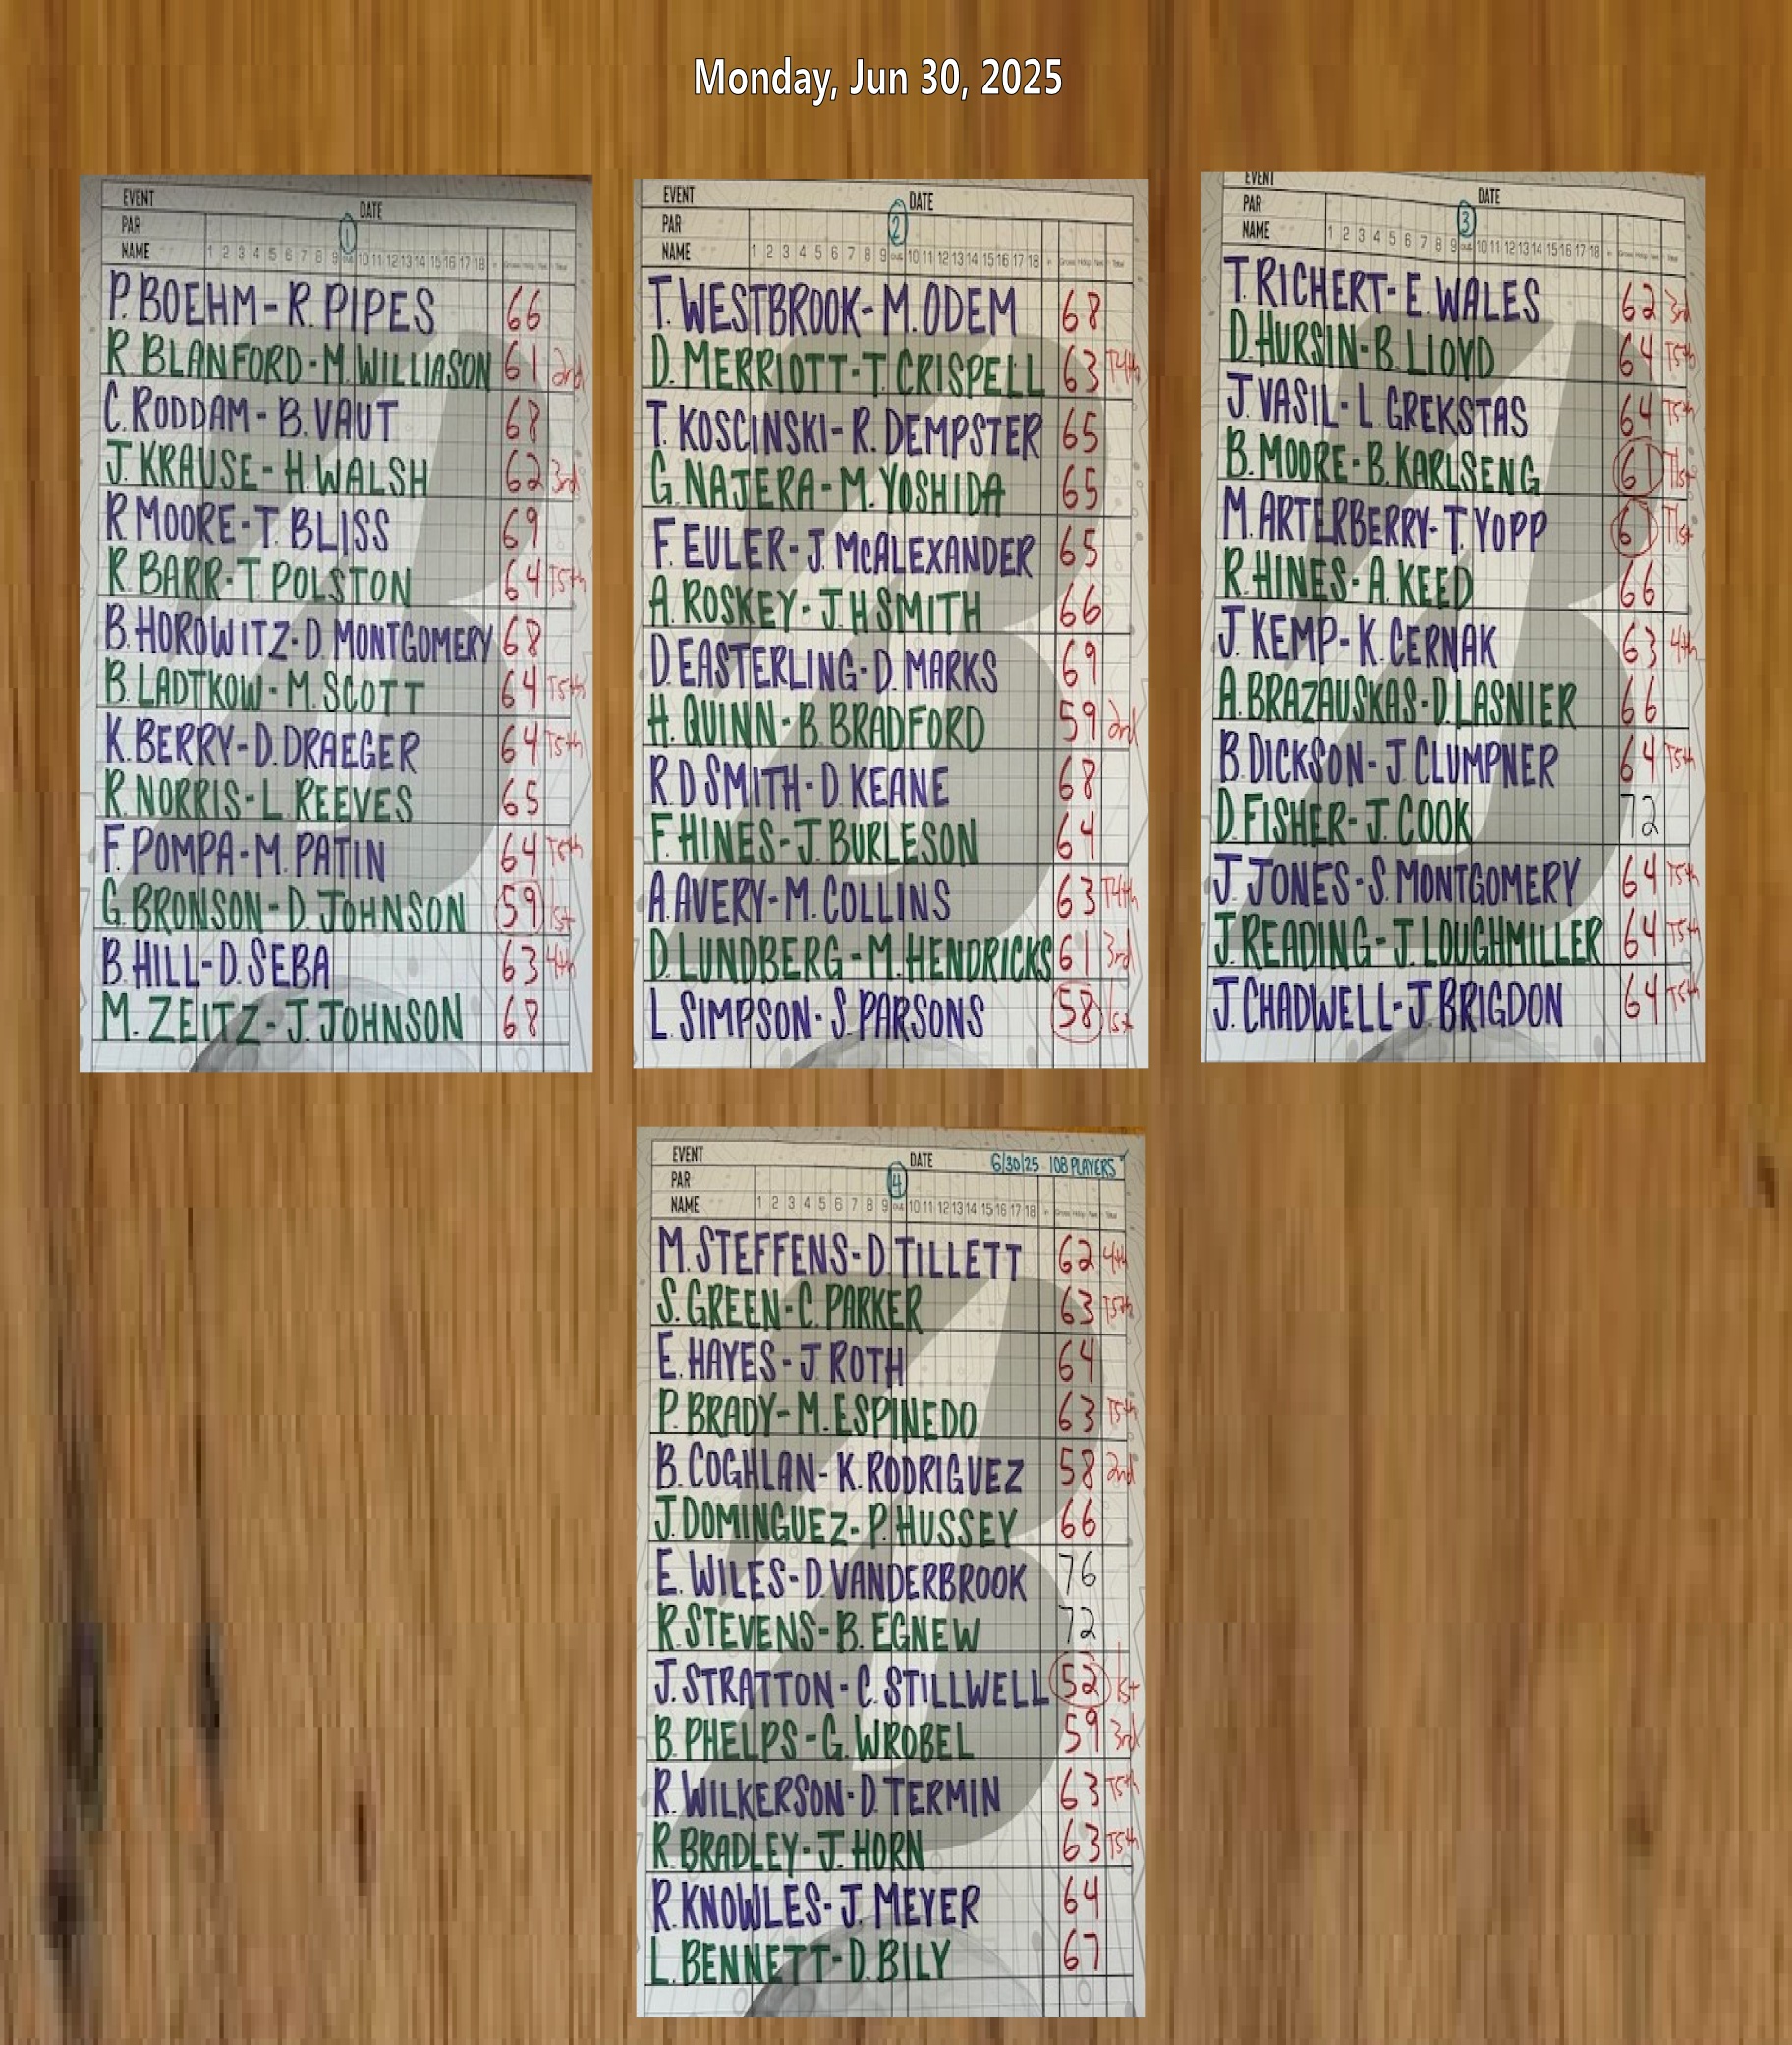 Monday, Jun 30, 2025
EVENT DATE
PAR ①
NAME 1 2 3 4 5 6 7 8 9 OUT 10 11 12 13 14 15 16 17 18 In Gross Hdcp Net Total
P. BOEHM - R. PIPES 66
R BLANFORD - M. WILLIASON 61 2nd
C. RODDAM - B. VAUT 68
J. KRAUSE - H. WALSH 62 3rd
R MOORE - T. BLISS 69
R. BARR - T. POLSTON 64 T5th
B. HOROWITZ - D. MONTGOMERY 68
B. LADTKOW - M. SCOTT 64 T5th
K. BERRY - D. DRAEGER 64 T5th
R. NORRIS - L. REEVES 65
F. POMPA - M. PATIN 64 T5th
G. BRONSON - D. JOHNSON 59 1st
B. HILL - D. SEBA 63 4th
M. ZEITZ - J. JOHNSON 68
EVENT DATE
PAR ②
NAME 1 2 3 4 5 6 7 8 9 OUT 10 11 12 13 14 15 16 17 18 In Gross Hdcp Net Total
T. WESTBROOK - M. ODEM 68
D. MERRIOTT - T. CRISPELL 63 T4th
T. KOSCINSKI - R. DEMPSTER 65
G. NAJERA - M. YOSHIDA 65
F. EULER - J. McALEXANDER 65
A. ROSKEY - J. H SMITH 66
D. EASTERLING - D. MARKS 69
H. QUINN - B. BRADFORD 59 2nd
R. D SMITH - D. KEANE 68
F. HINES - J. BURLESON 64
A. AVERY - M. COLLINS 63 T4th
D. LUNDBERG - M. HENDRICKS 61 3rd
L. SIMPSON - S. PARSONS 58 1st
EVENT DATE
PAR ③
NAME 1 2 3 4 5 6 7 8 9 OUT 10 11 12 13 14 15 16 17 18 In Gross Hdcp Net Total
T. RICHERT - E. WALES 62 3rd
D. HURSIN - B. LLOYD 64 T5th
J. VASIL - L. GREKSTAS 64 T5th
B. MOORE - B. KARLSENG 61 T1st
M. ARTERBERRY - T. YOPP 61 T1st
R. HINES - A. KEED 66
J. KEMP - K. CERNAK 63 4th
A. BRAZAUSKAS - D. LASNIER 66
B. DICKSON - J. CLUMPNER 64 T5th
D. FISHER - J. COOK 72
J. JONES - S. MONTGOMERY 64 T5th
J. READING - J. LOUGHMILLER 64 T5th
J. CHADWELL - J. BRIGDON 64 T5th
EVENT DATE 6/30/25 108 PLAYERS
PAR ④
NAME 1 2 3 4 5 6 7 8 9 OUT 10 11 12 13 14 15 16 17 18 In Gross Hdcp Net Total
M. STEFFENS - D. TILLETT 62 4th
S. GREEN - C. PARKER 63 T5th
E. HAYES - J. ROTH 64
P. BRADY - M. ESPINEDO 63 T5th
B. COGHLAN - K. RODRIGUEZ 58 2nd
J. DOMINGUEZ - P. HUSSEY 66
E. WILES - D. VANDERBROOK 76
R. STEVENS - B. EGNEW 72
J. STRATTON - C. STILLWELL 52 1st
B. PHELPS - G. WROBEL 59 3rd
R. WILKERSON - D. TERMIN 63 T5th
R. BRADLEY - J. HORN 63 T5th
R. KNOWLES - J. MEYER 64
L. BENNETT - D. BILY 67